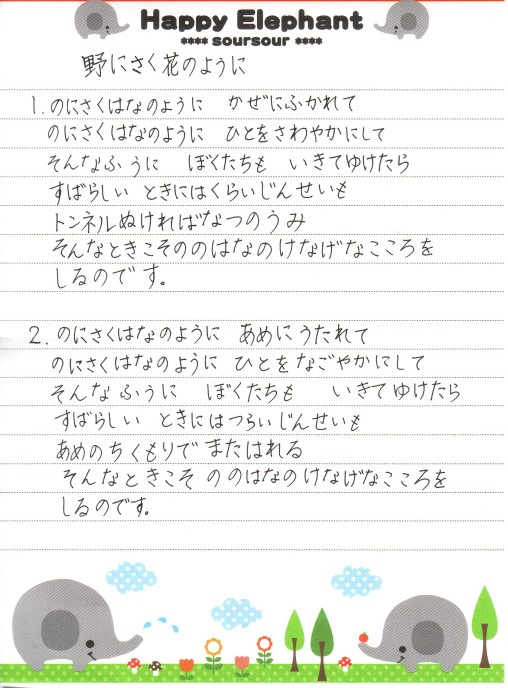 Happy Elephant
**** soursour ****
野にさく花のように
1. のにさくはなのように かぜにふかれて
のにさくはなのように ひとをさわやかにして
そんなふうに ぼくたちも いきてゆけたら
すばらしい ときにはくらいじんせいも
トンネルぬければなつのうみ
そんなときこそののはなのけなげなこころを
しるのです。
2. のにさくはなのように あめにうたれて
のにさくはなのように ひとをなごやかにして
そんなふうに ぼくたちも いきてゆけたら
すばらしい ときにはつらいじんせいも
あめのちくもりでまたはれる
そんなときこそののはなのけなげなこころを
しるのです。